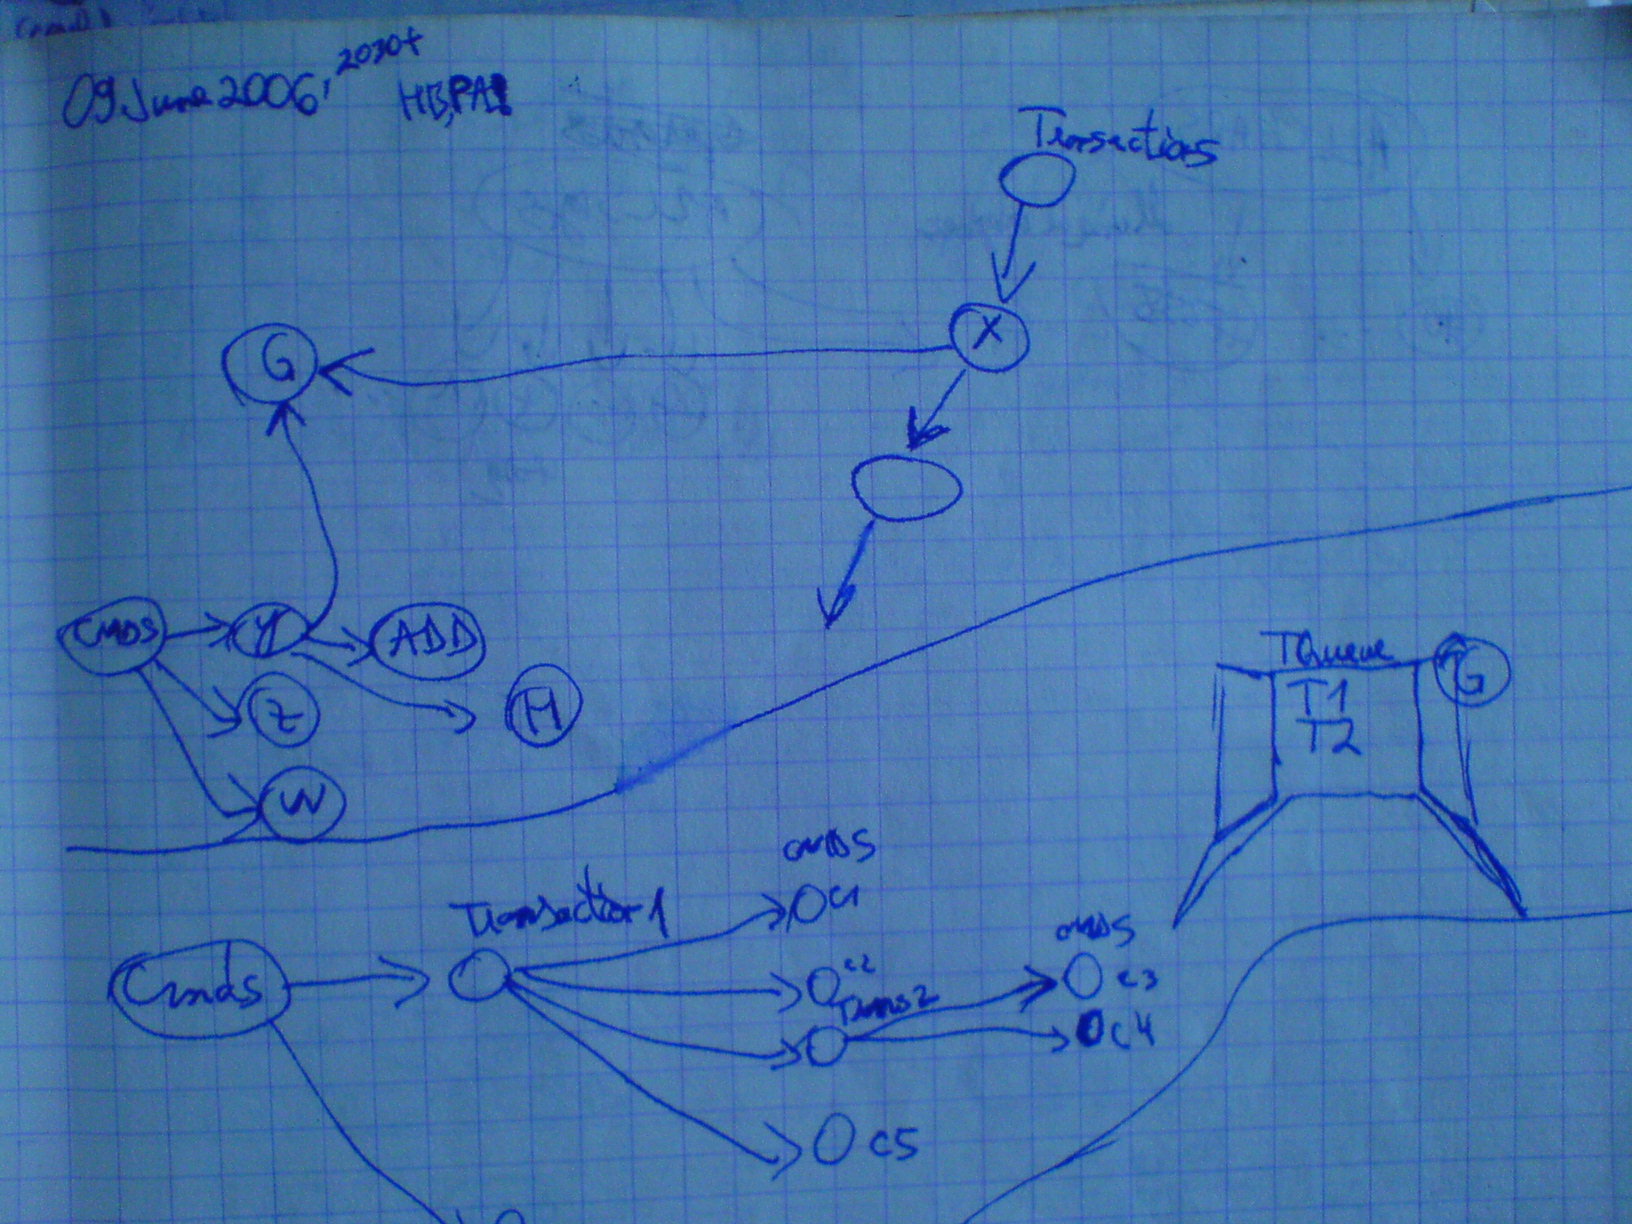 2030+
09 June 2006,
HB,PA!
Transactions
X
G
CMDS
Y
ADD
Z
M
W
TQueue
G
T1
T2
CMDS
Transaction1
C1
Cmds
C2
CMDS
Trans2
C3
C4
C5